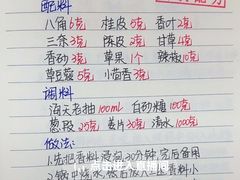 配料
八角6克 桂皮5克 香叶2克
三奈3克 陈皮2克 甘草4克
香砂3克 草果1个 辣椒10克
草豆蔻5克 小茴香3克
调料
海天老抽100ml 白砂糖100克
葱段25克 姜片30克 清水1000克
做法:
1.先把香料浸泡30分钟,完后备用